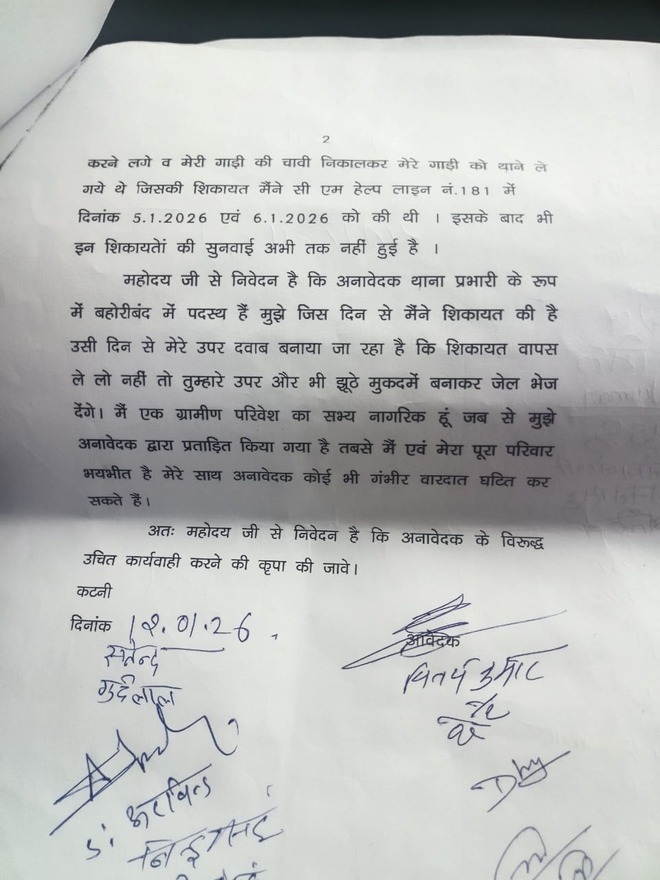 2
करने लगे व मेरी गाड़ी की चावी निकालकर मेरे गाड़ी को थाने ले
गये थे जिसकी शिकायत मैंने सी एम हेल्प लाइन नं.181 में
दिनांक 5.1.2026 एवं 6.1.2026 को की थी । इसके बाद भी
इन शिकायतों की सुनवाई अभी तक नहीं हुई है ।
महोदय जी से निवेदन है कि अनावेदक थाना प्रभारी के रूप
में बहोरीबंद में पदस्थ हैं मुझे जिस दिन से मैंने शिकायत की है
उसी दिन से मेरे उपर दवाब बनाया जा रहा है कि शिकायत वापस
ले लो नहीं तो तुम्हारे उपर और भी झूठे मुकदमें बनाकर जेल भेज
देंगे। मैं एक ग्रामीण परिवेश का सभ्य नागरिक हूं जब से मुझे
अनावेदक द्वारा प्रताड़ित किया गया है तबसे मैं एवं मेरा पूरा परिवार
भयभीत है मेरे साथ अनावेदक कोई भी गंभीर वारदात घटित कर
सकते हैं।
अतः महोदय जी से निवेदन है कि अनावेदक के विरूद्ध
उचित कार्यवाही करने की कृपा की जावे।
कटनी
दिनांक 12.01.26
आवेदक